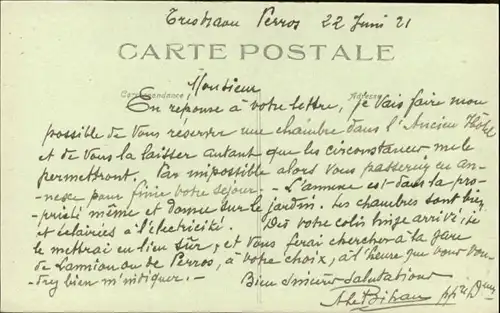 Trestraou Perros 22 Juni 21
CARTE POSTALE
Correspondance Adresse
Monsieur
En réponse à votre lettre, je vais faire mon
possible de vous reserver une chambre dans l'Ancien Hôtel
et de vous la laisser autant que les circonstances me le
permettront. Pas impossible alors vous passeriez en an-
-nexe pour finir votre séjour. - L'annexe est dans la pro-
-priété même et donne sur le jardin. Les chambres sont bien
et éclairées à l'électricité. Dès votre colis linge arrivé, je
le mettrai en lieu sûr, et vous ferai chercher à la gare
de Lannion ou de Perros, à votre choix, à l'heure que vous vou-
-drez bien m'indiquer. -
Bien sincères salutations